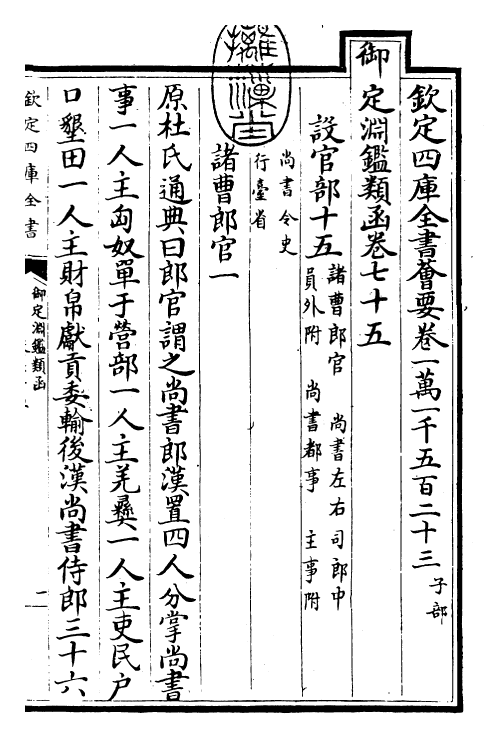 欽定四庫全書薈要卷一萬一千五百二十三 子部
御定淵鑑類函卷七十五
設官部十五 諸曹郎官 尚書左右司郎中
員外附 尚書都事 主事附
尚書令史
行臺省
諸曹郎官一
原杜氏通典曰郎官謂之尚書郎漢置四人分掌尚書
事一人主匈奴單于營部一人主羌彝一人主吏民户
口墾田一人主財帛獻貢委輸後漢尚書侍郎三十六
欽定四庫全書
御定淵鑑類函